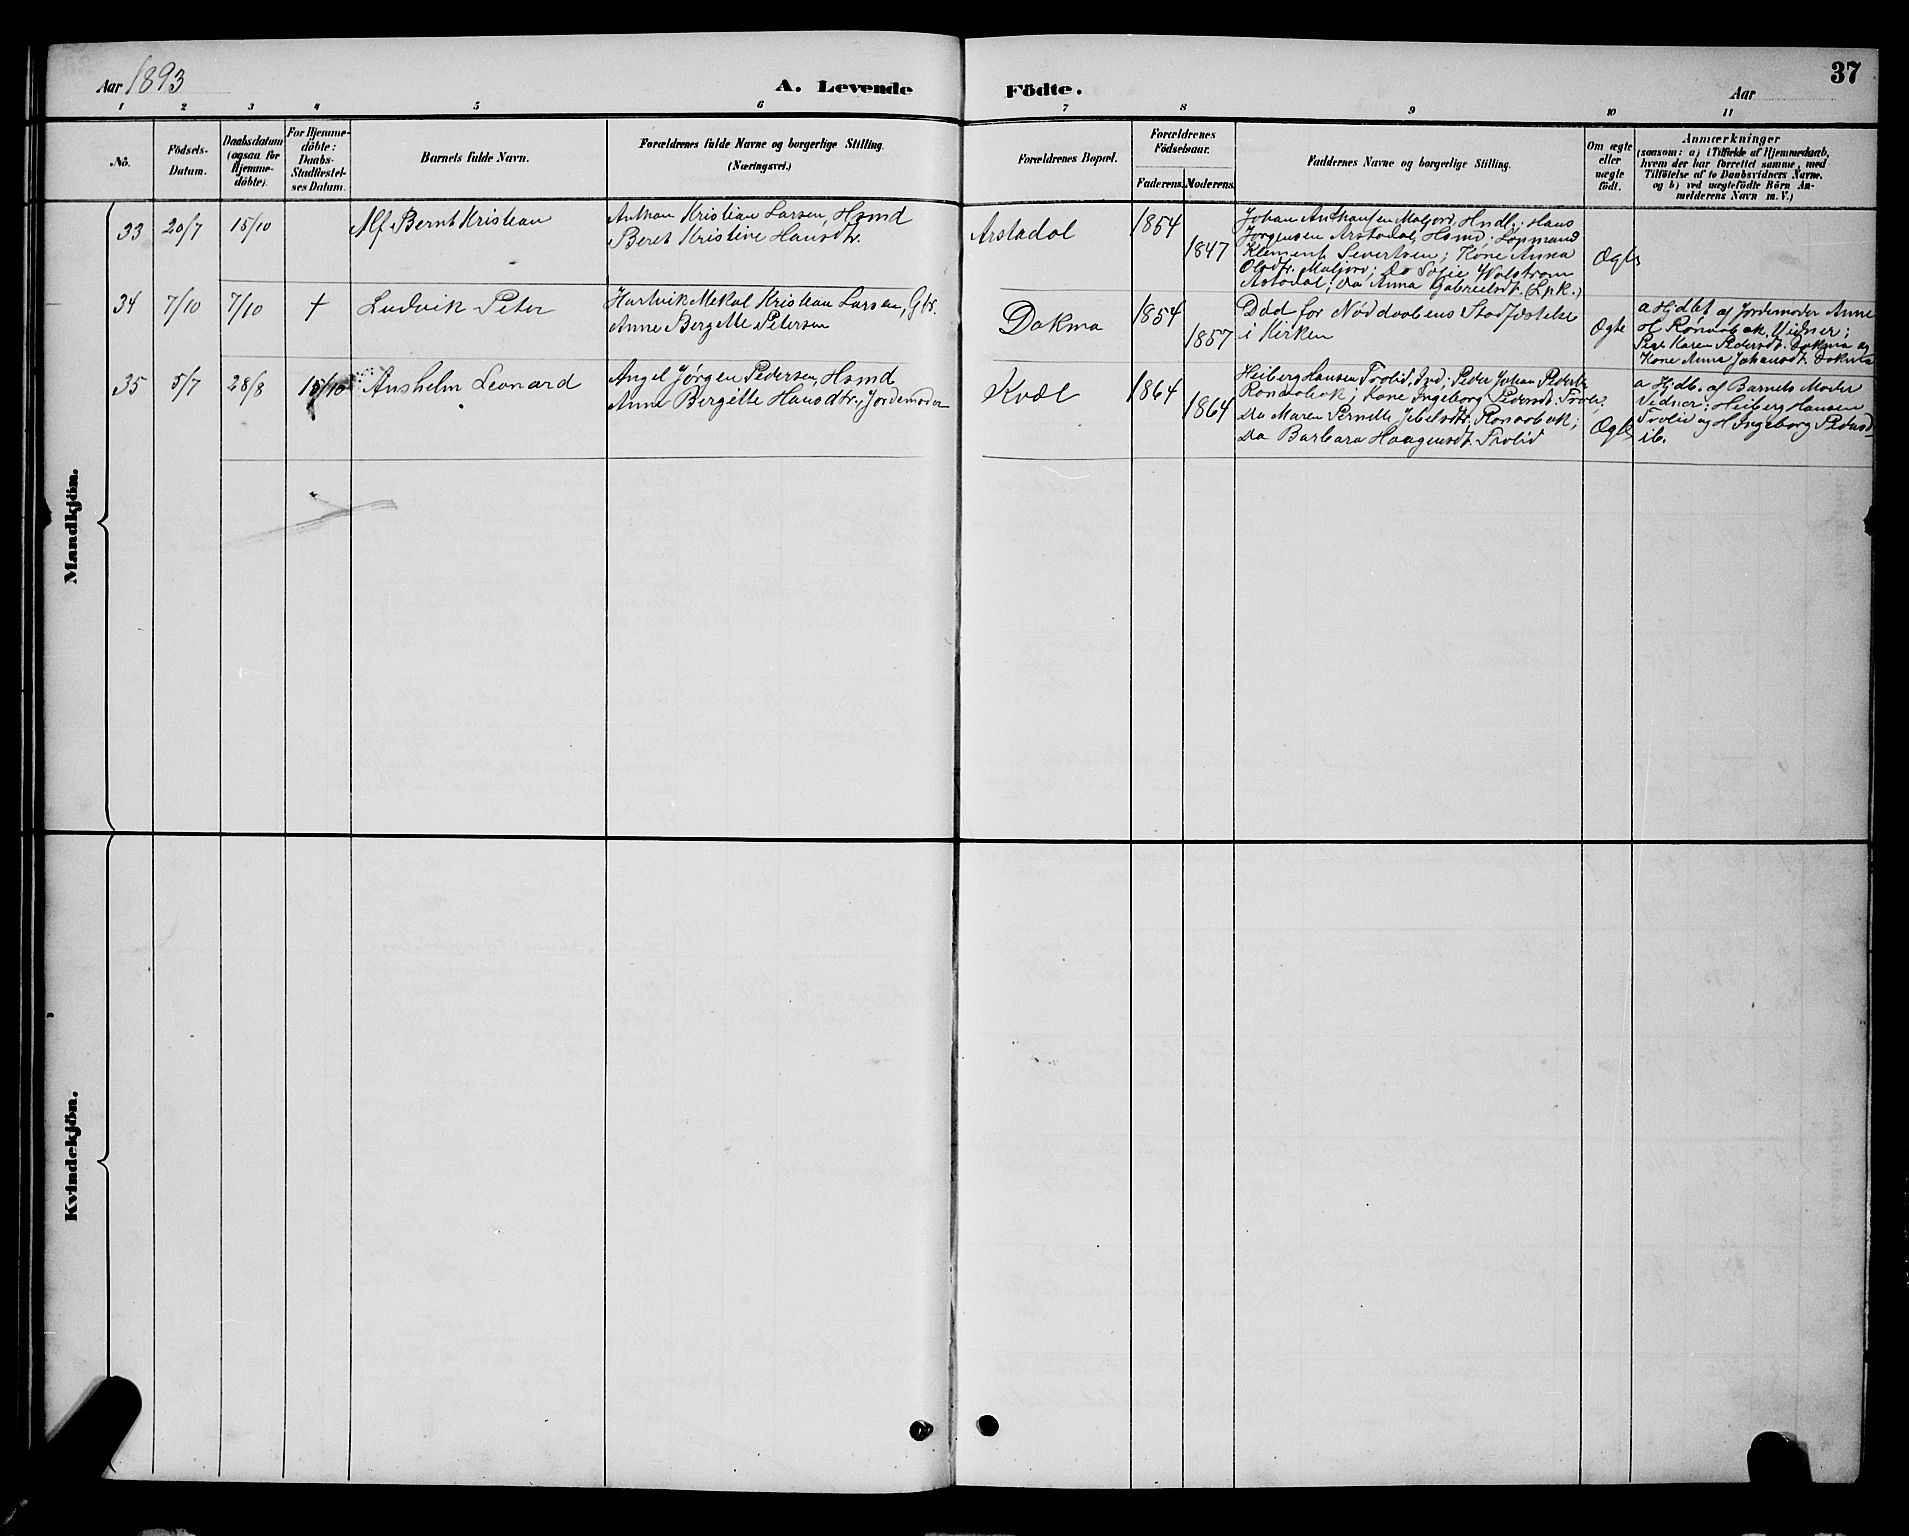 Aar 1893
A. Levende Födte.
Aar
37
1 2 3 4 5 6 7 8 9 10 11
No.
Födsels-
Datum.
Daabsdatum
(ogsaa for
Hjemme-
döbte).
For Hjemme-
döbte:
Daabs-
Stadfæstel-
ses Datum.
Barnets fulde Navn.
Forældrenes fulde Navne og borgerlige Stilling.
(Næringsvei.)
Forældrenes Bopæl.
Forældrenes
Födselsaar.
Faderens. Moderens.
Faddernes Navne og borgerlige Stilling.
Om ægte
eller
uægte
födt.
Anmærkninger
(saasom: a) i Tilfælde af Hjemmedaab,
hvem der har forrettet samme, med
Tilföielse af to Daabsvidners Navne.
og b) ved uægtefödte Börn An-
melderens Navn m. V.)
Mandkjön.
33 20/7 15/10
Alf Bernt Kristian
Anthon Kristian Larsen, Hsmd
Beret Kristine Hansdtr.
Arstadal
1854
1847
Johan Anthonsen Maljord, Hndl.; Hans
Jörgensen Arstadal, Hsmd; Lopmand
Klement Severtsen; Kone Anna
Olsdtr. Maljord; Do Sofie Wolstrøm
Astadal; Do Anna Gabrielsdt. (Lpk.)
Ægte
34 7/10 7/10 †
Ludvik Peter
Hartvik Mekal Kristian Larsen, Gbr.
Anne Bergette Petersen
Dokmo
1854
1857
Død før Nøddaabens Stadfæstelse
i Kirken
Ægte
a Hjdbt af Jordemoder Anne
H. Rönaabak, Vidner;
Pige Karen Pedersdt. Dokmo og
Kone Anna Johansdt. Dokmo
35 5/7 28/8 15/10
Anshelm Leonard
Angel Jörgen Pedersen, Hsmd
Anne Bergitte Hansdtr., Jordemoder
Kvæl
1864
1864
Heiberg Hansen Trolid, Ind; Peder Johan Peders.
Ronaabak; Kone Ingeborg Pedersdt. Trolid,
Do Maren Pernelle Jebelsdtr. Ronaabak;
Do Barbara Haagensdt. Trolid
Ægte
a Hjdb. af Barnets Moder
Vidner: Heiberg Hansen
Trolid og H Ingeborg Pedersd
ib.
Kvindekjön.